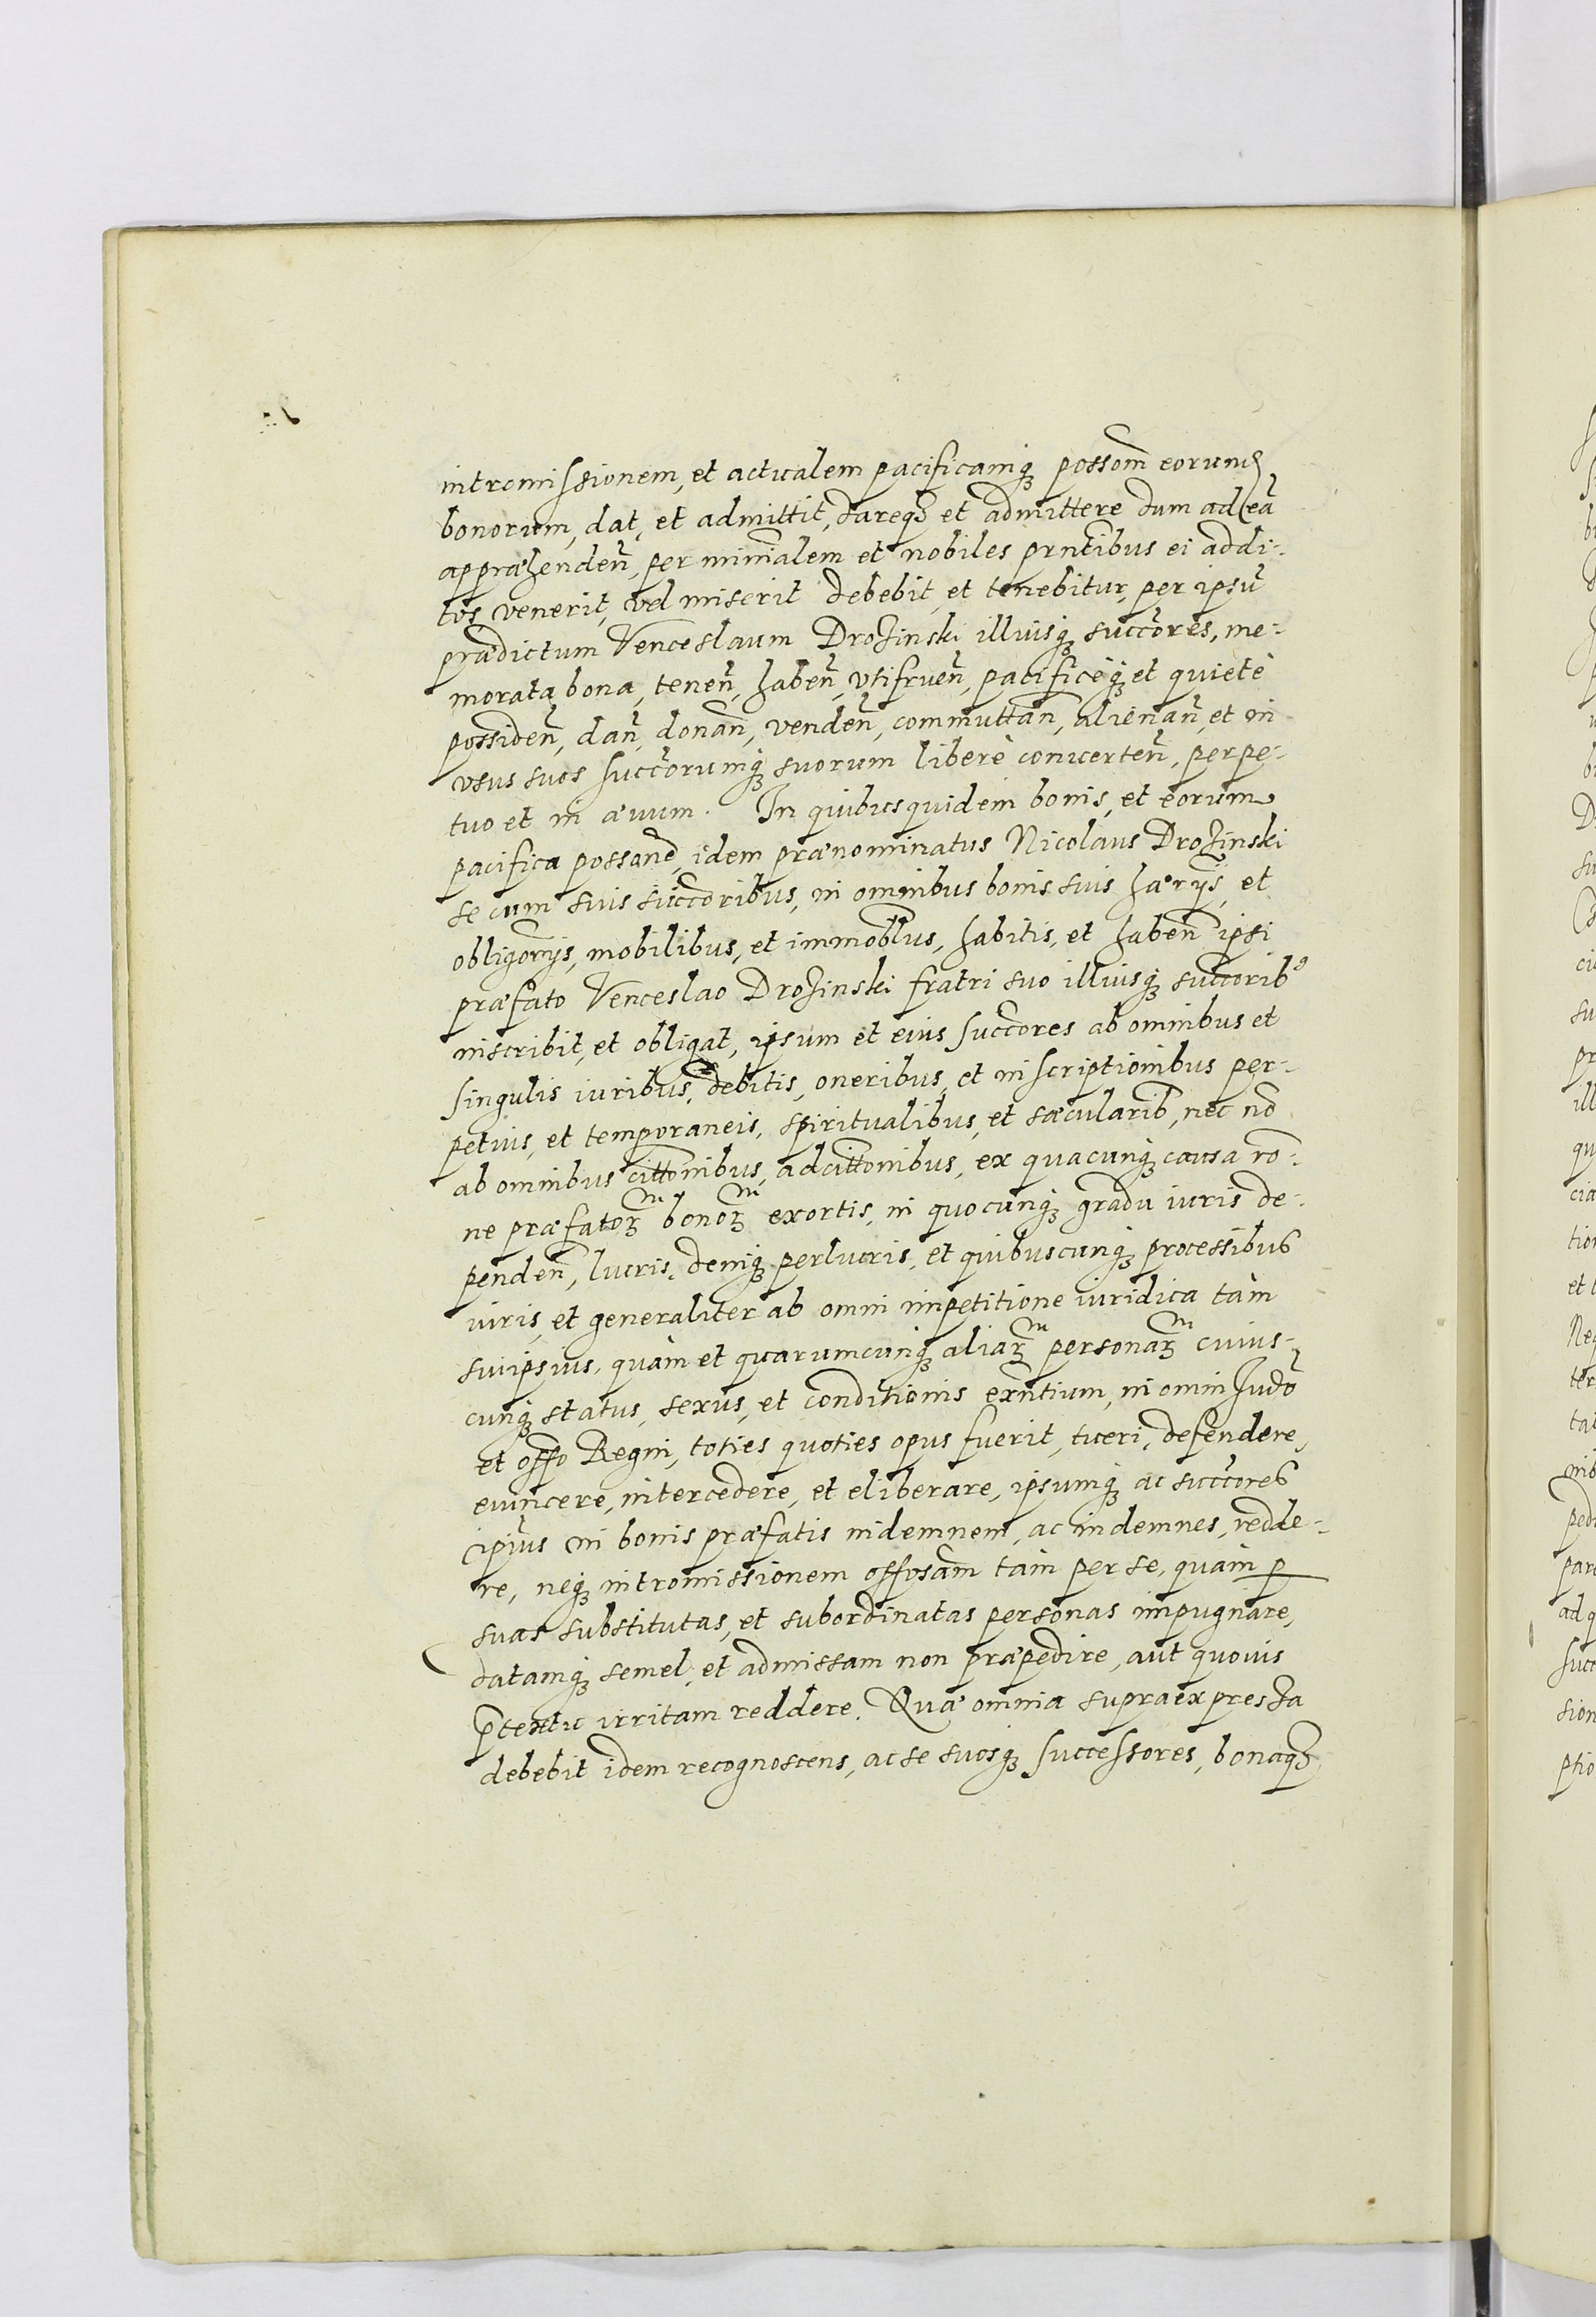 intromissionem, et actualem pacificamq₃ possom̃ eorund̃
bonorum, dat, et admittit, dareq₃ et admittere dum ad eã
appræhendeñ, per minĩalem et nobiles prñtibus ei addi-
tos venerit, vel miserit debebit, et tenebitur, per ipsũ
prædictum Venceslaum Drozinski illiusq₃ succ̃ores, me-
morata bona, teneñ, habeñ, vtifrueñ, pacificèq₃ et quietè
possideñ, dañ, donañ, vendeñ, commuttañ, alienañ, et in
vsus suos succ̃orumq₃ suorum liberè conuerteñ, perpe-
tuo et in æuum. In quibus quidem bonis, et eorum
pacifica possonẽ, idem prænominatus Nicolaus Drozinski
se cum suis succ̃oribus, in omnibus bonis suis hær̃ijs, et
obligor̃ijs, mobilibus, et immob̃lus, habitis, et habeñ ipsi
præfato Venceslao Drozinski fratri suo illiusq₃ succ̃orib9
inscribit, et obligat, ipsum et eius succ̃ores ab omnibus et
singulis iuribus, debitis, oneribus, et inscriptionibus per-
petuis, et temporaneis, spiritualibus, et sæcularib, nec nõ
ab omnibus citt̃onibus, adcitt̃onibus, ex quacunq₃ causa rõ-
ne præfatoꝝ bonoꝝ exortis, in quocunq₃ gradu iuris de-
pendeñ, lucris, deniq₃ perlucris, et quibuscunq₃ processibus
iuris, et generaliter ab omni impetitione iuridica tàm
suiipsius, quàm et quarumcunq₃ aliaꝝ personaꝝ cuius-
cunq₃ status, sexus, et conditionis exñtium, in omni Judõ
et offõ Regni, toties quoties opus fuerit, tueri, defendere,
euincere, intercedere, et eliberare, ipsumq₃ ac succ̃ores
ipsius in bonis præfatis indemnem, ac indemnes, redde-
re, neq₃ intromissionem offosam̃ tàm per se, quàm ꝑ
suas substitutas, et subordinatas personas impugnare,
datamq₃ semel, et admissam non præpedire, aut quouis
p̃textu irritam reddere. Quæ omnia supra expressa
debebit idem recognoscens, ac se suosq₃ successores, bonaq₃